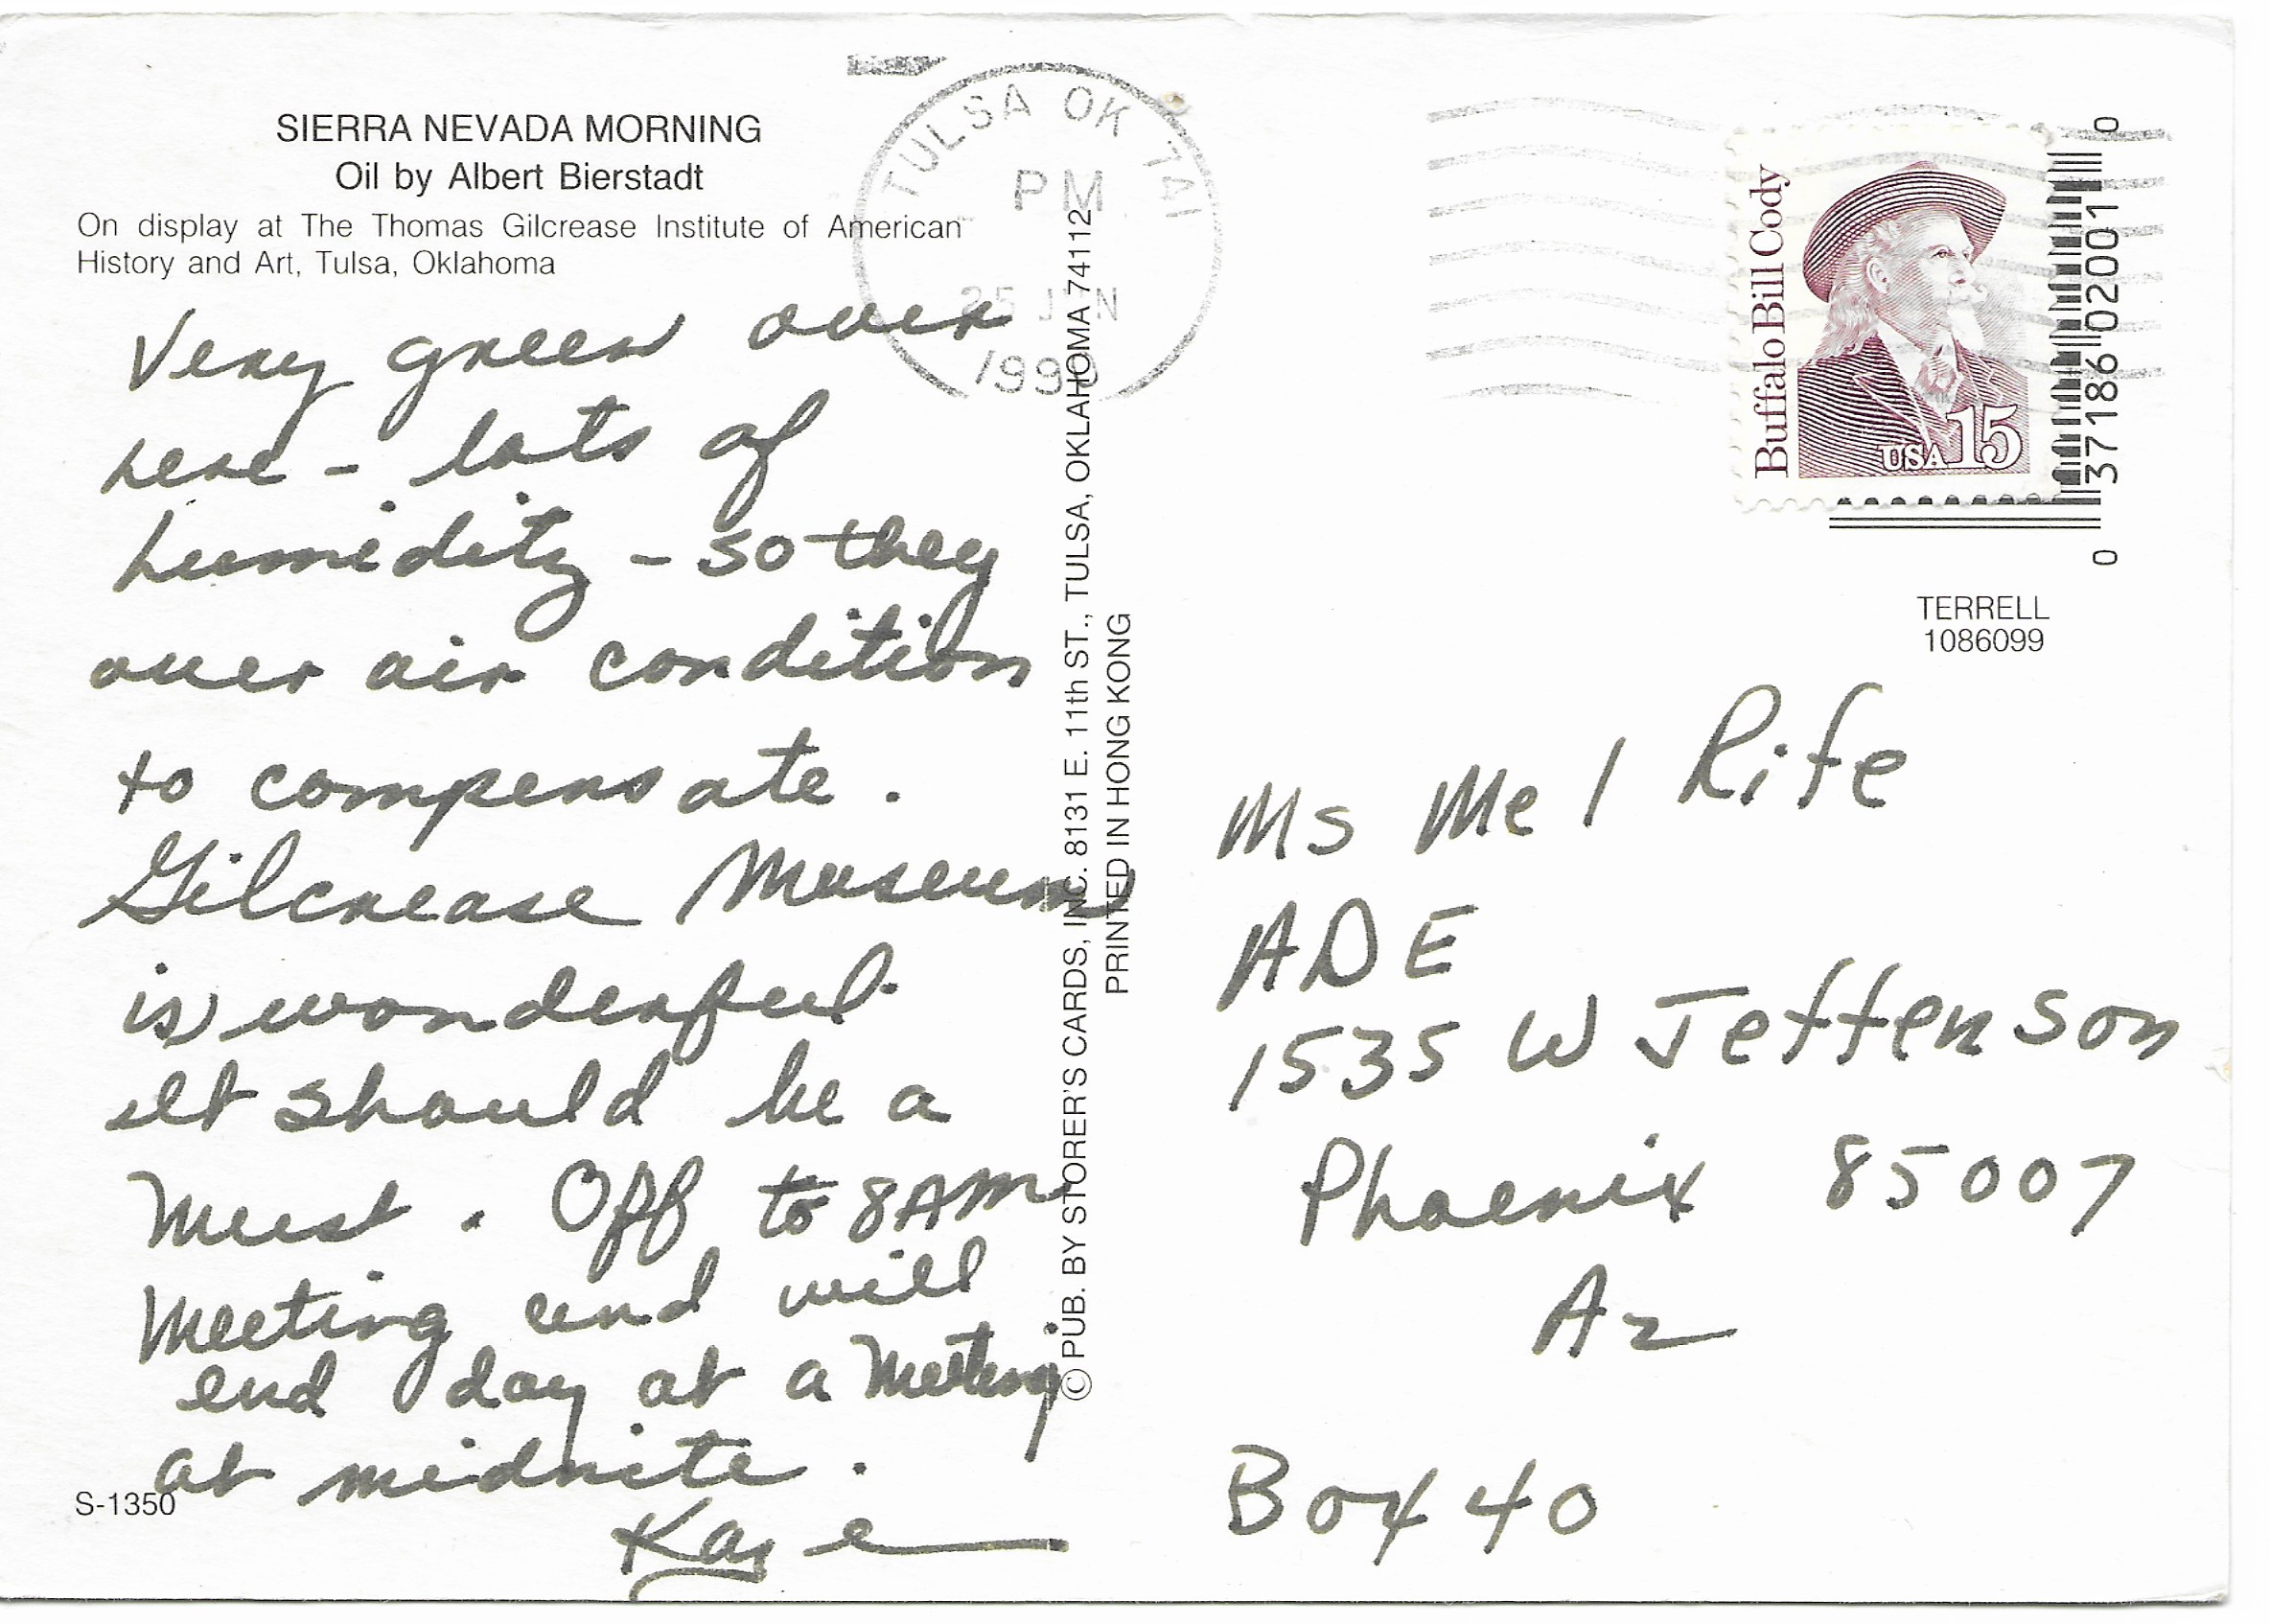 SIERRA NEVADA MORNING
Oil by Albert Bierstadt
On display at The Thomas Gilcrease Institute of American
History and Art, Tulsa, Oklahoma
Very green over
here - lots of
humidity - so they
over air condition
to compensate.
Gilcrease Museum
is wonderful.
It should be a
must. Off to 8AM
meeting and will
end day at a meeting
at midnite.
Kaye
S-1350
© PUB. BY STORER'S CARDS, INC. 8131 E. 11th ST., TULSA, OKLAHOMA 74112
PRINTED IN HONG KONG
TULSA OK 741
PM
25 JUN
1990
Buffalo Bill Cody
USA 15
0 37186 02001 0
TERRELL
1086099
Ms Mel Rife
ADE
1535 W Jefferson
Phoenix 85007
Az
Box 40